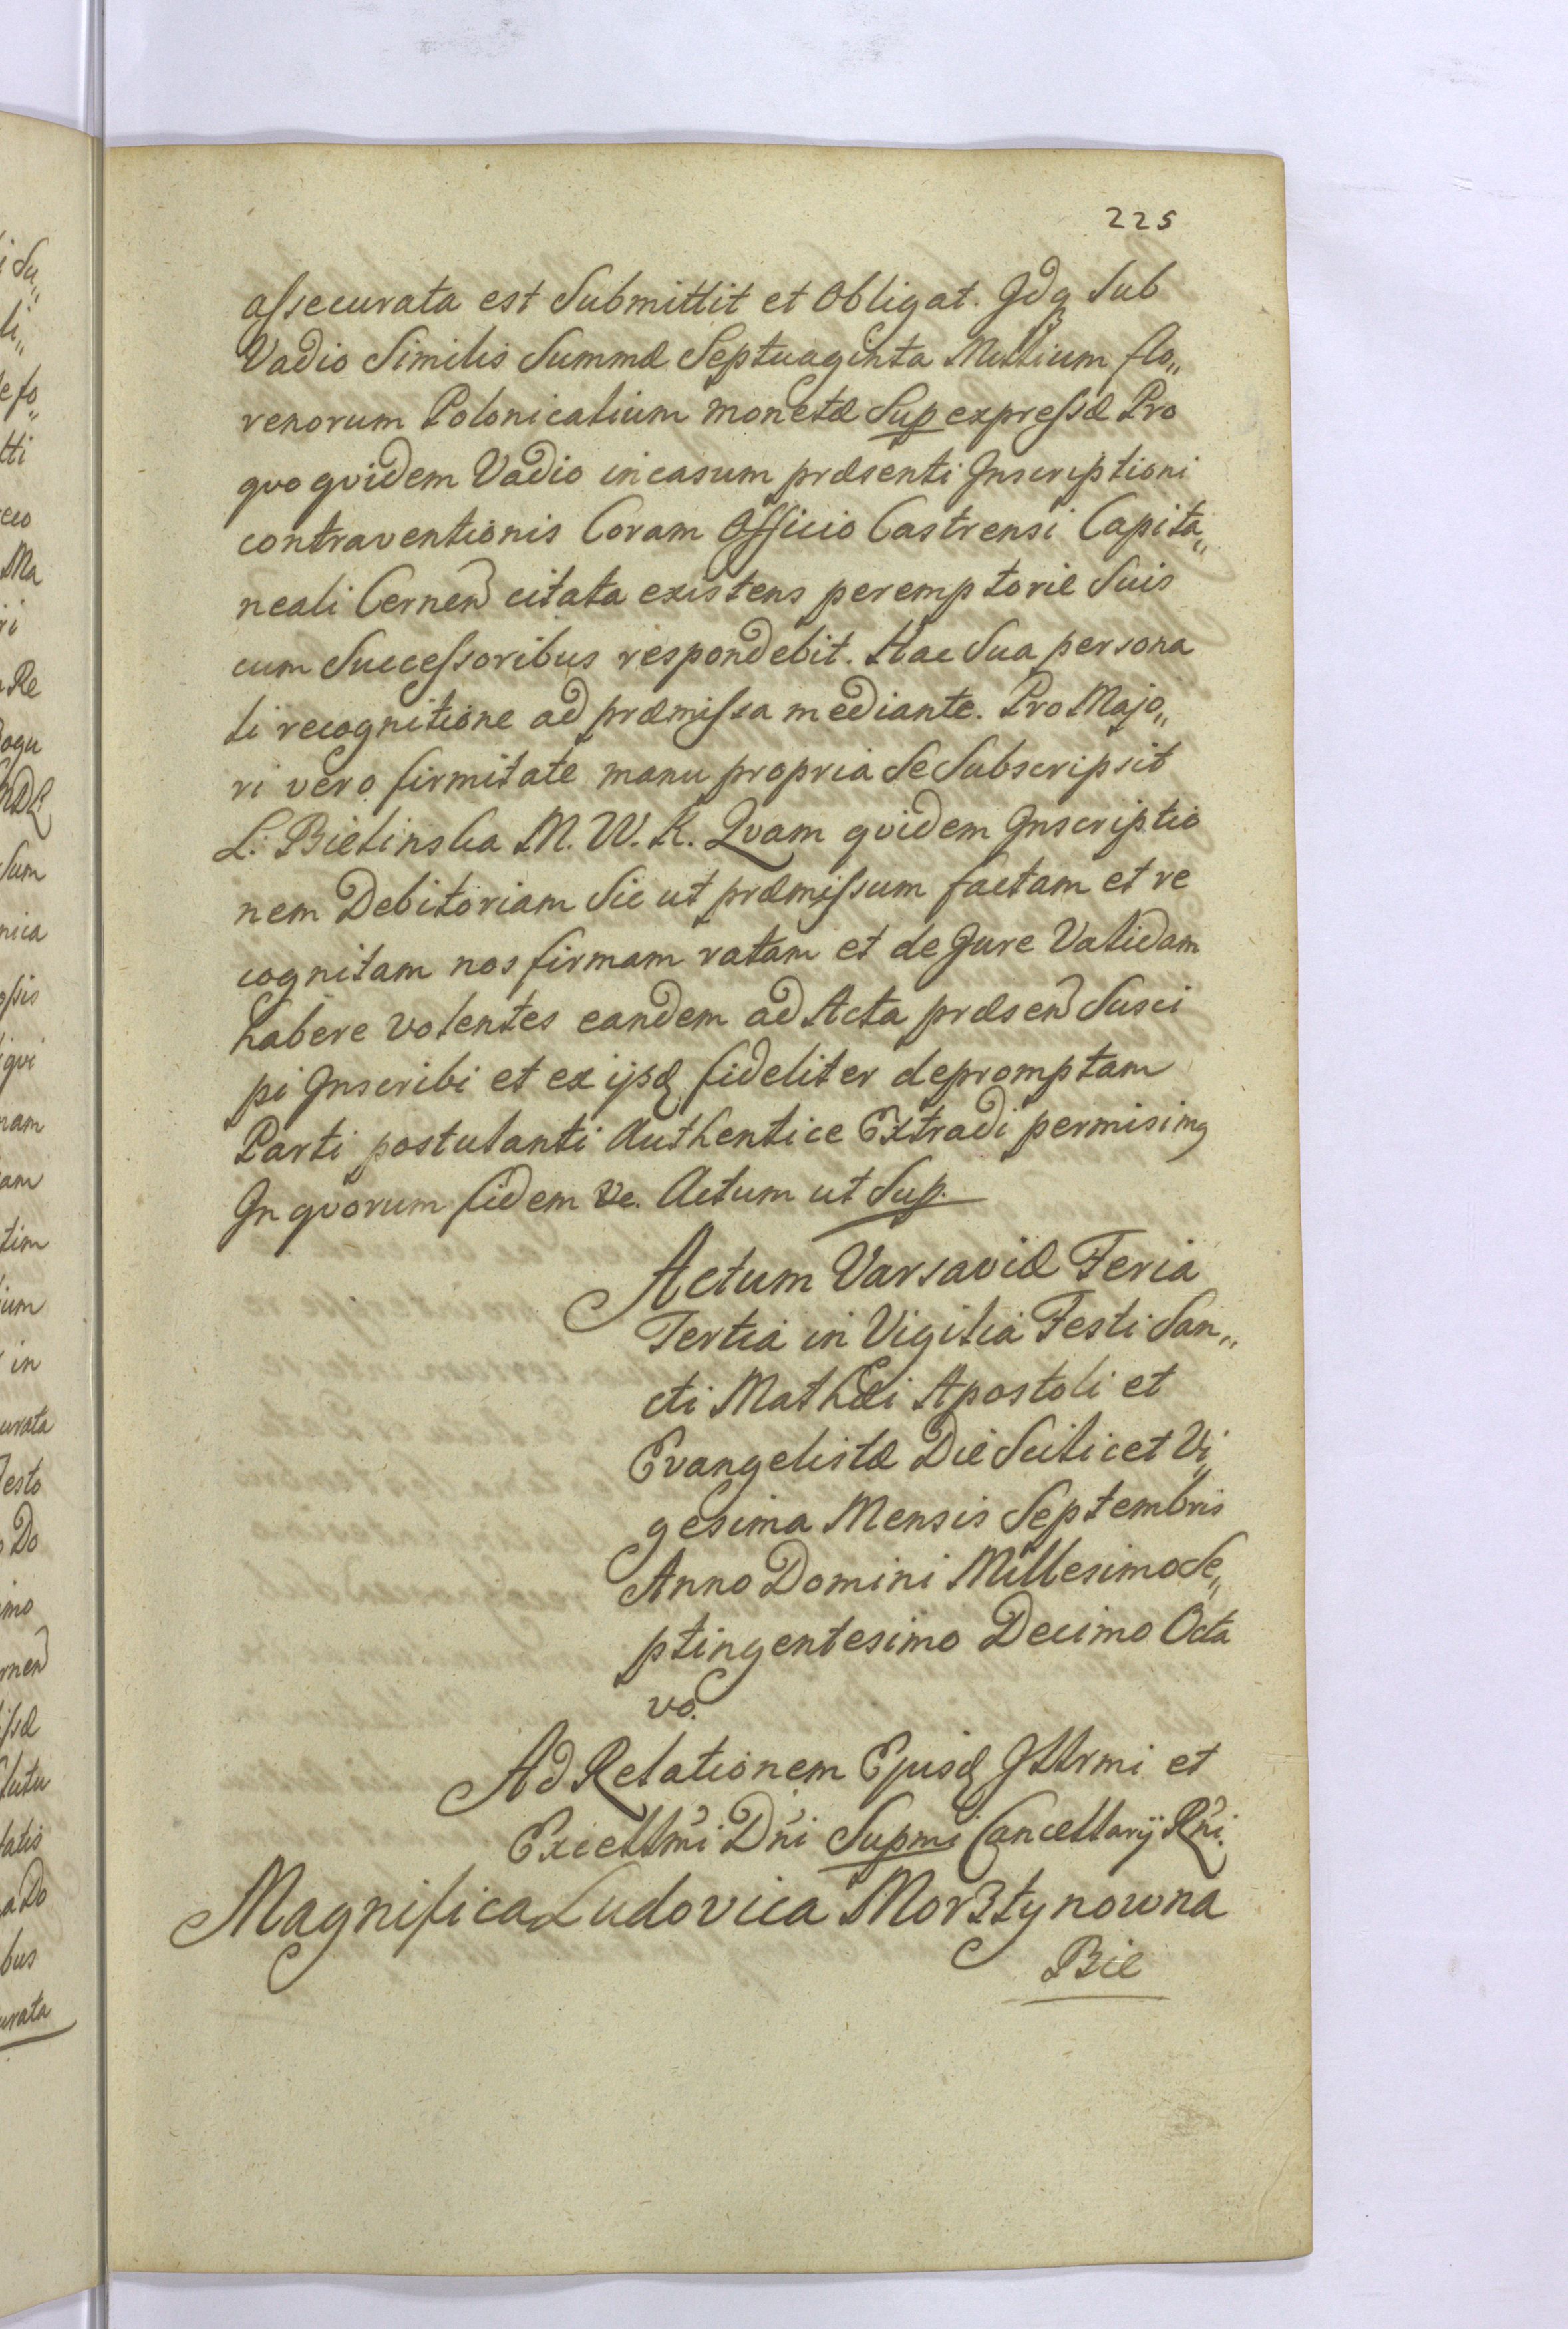 225
assecurata est Submittit et Obligat. Idq Sub
Vadio Similis Summæ Septuaginta Millium flo„
renorum Polonicalium monetæ Sup expressæ Pro
quo quidem Vadio in casum præsenti Inscriptioni
contraventionis Coram Officio Castrensi Capita„
neali Cernen citata existens peremptorie Suis
cum Successoribus respondebit. Hac Sua persona
li recognitione ad præmissa mediante. Pro Majo„
ri vero firmitate manu propria se Subscripsit
L. Bielinska M. W. K. Quam quidem Inscriptio
nem Debitoriam Sic ut præmissum factam et re
cognitam nos firmam ratam et de Jure Validam
habere volentes eandem ad Acta præsen Susci
pi Inscribi et ex ijsd fideliter depromptam
Parti postulanti Authentice Extradi permisimq
In quorum fidem &c. Actum ut Sup.
Actum Varsaviæ Feria
Tertia in Vigilia Festi San„
cti Mathæi Apostoli et
Evangelistæ Die Scilicet Vi„
gesima Mensis Septembris
Anno Domini Millesimo Se„
ptingentesimo Decimo Octa
vo.
Ad Relationem Ejusd Illrmi et
Excellmi Dni Supmi Cancellarij Rni.
Magnifica Ludovica Morsztynowna
Bie